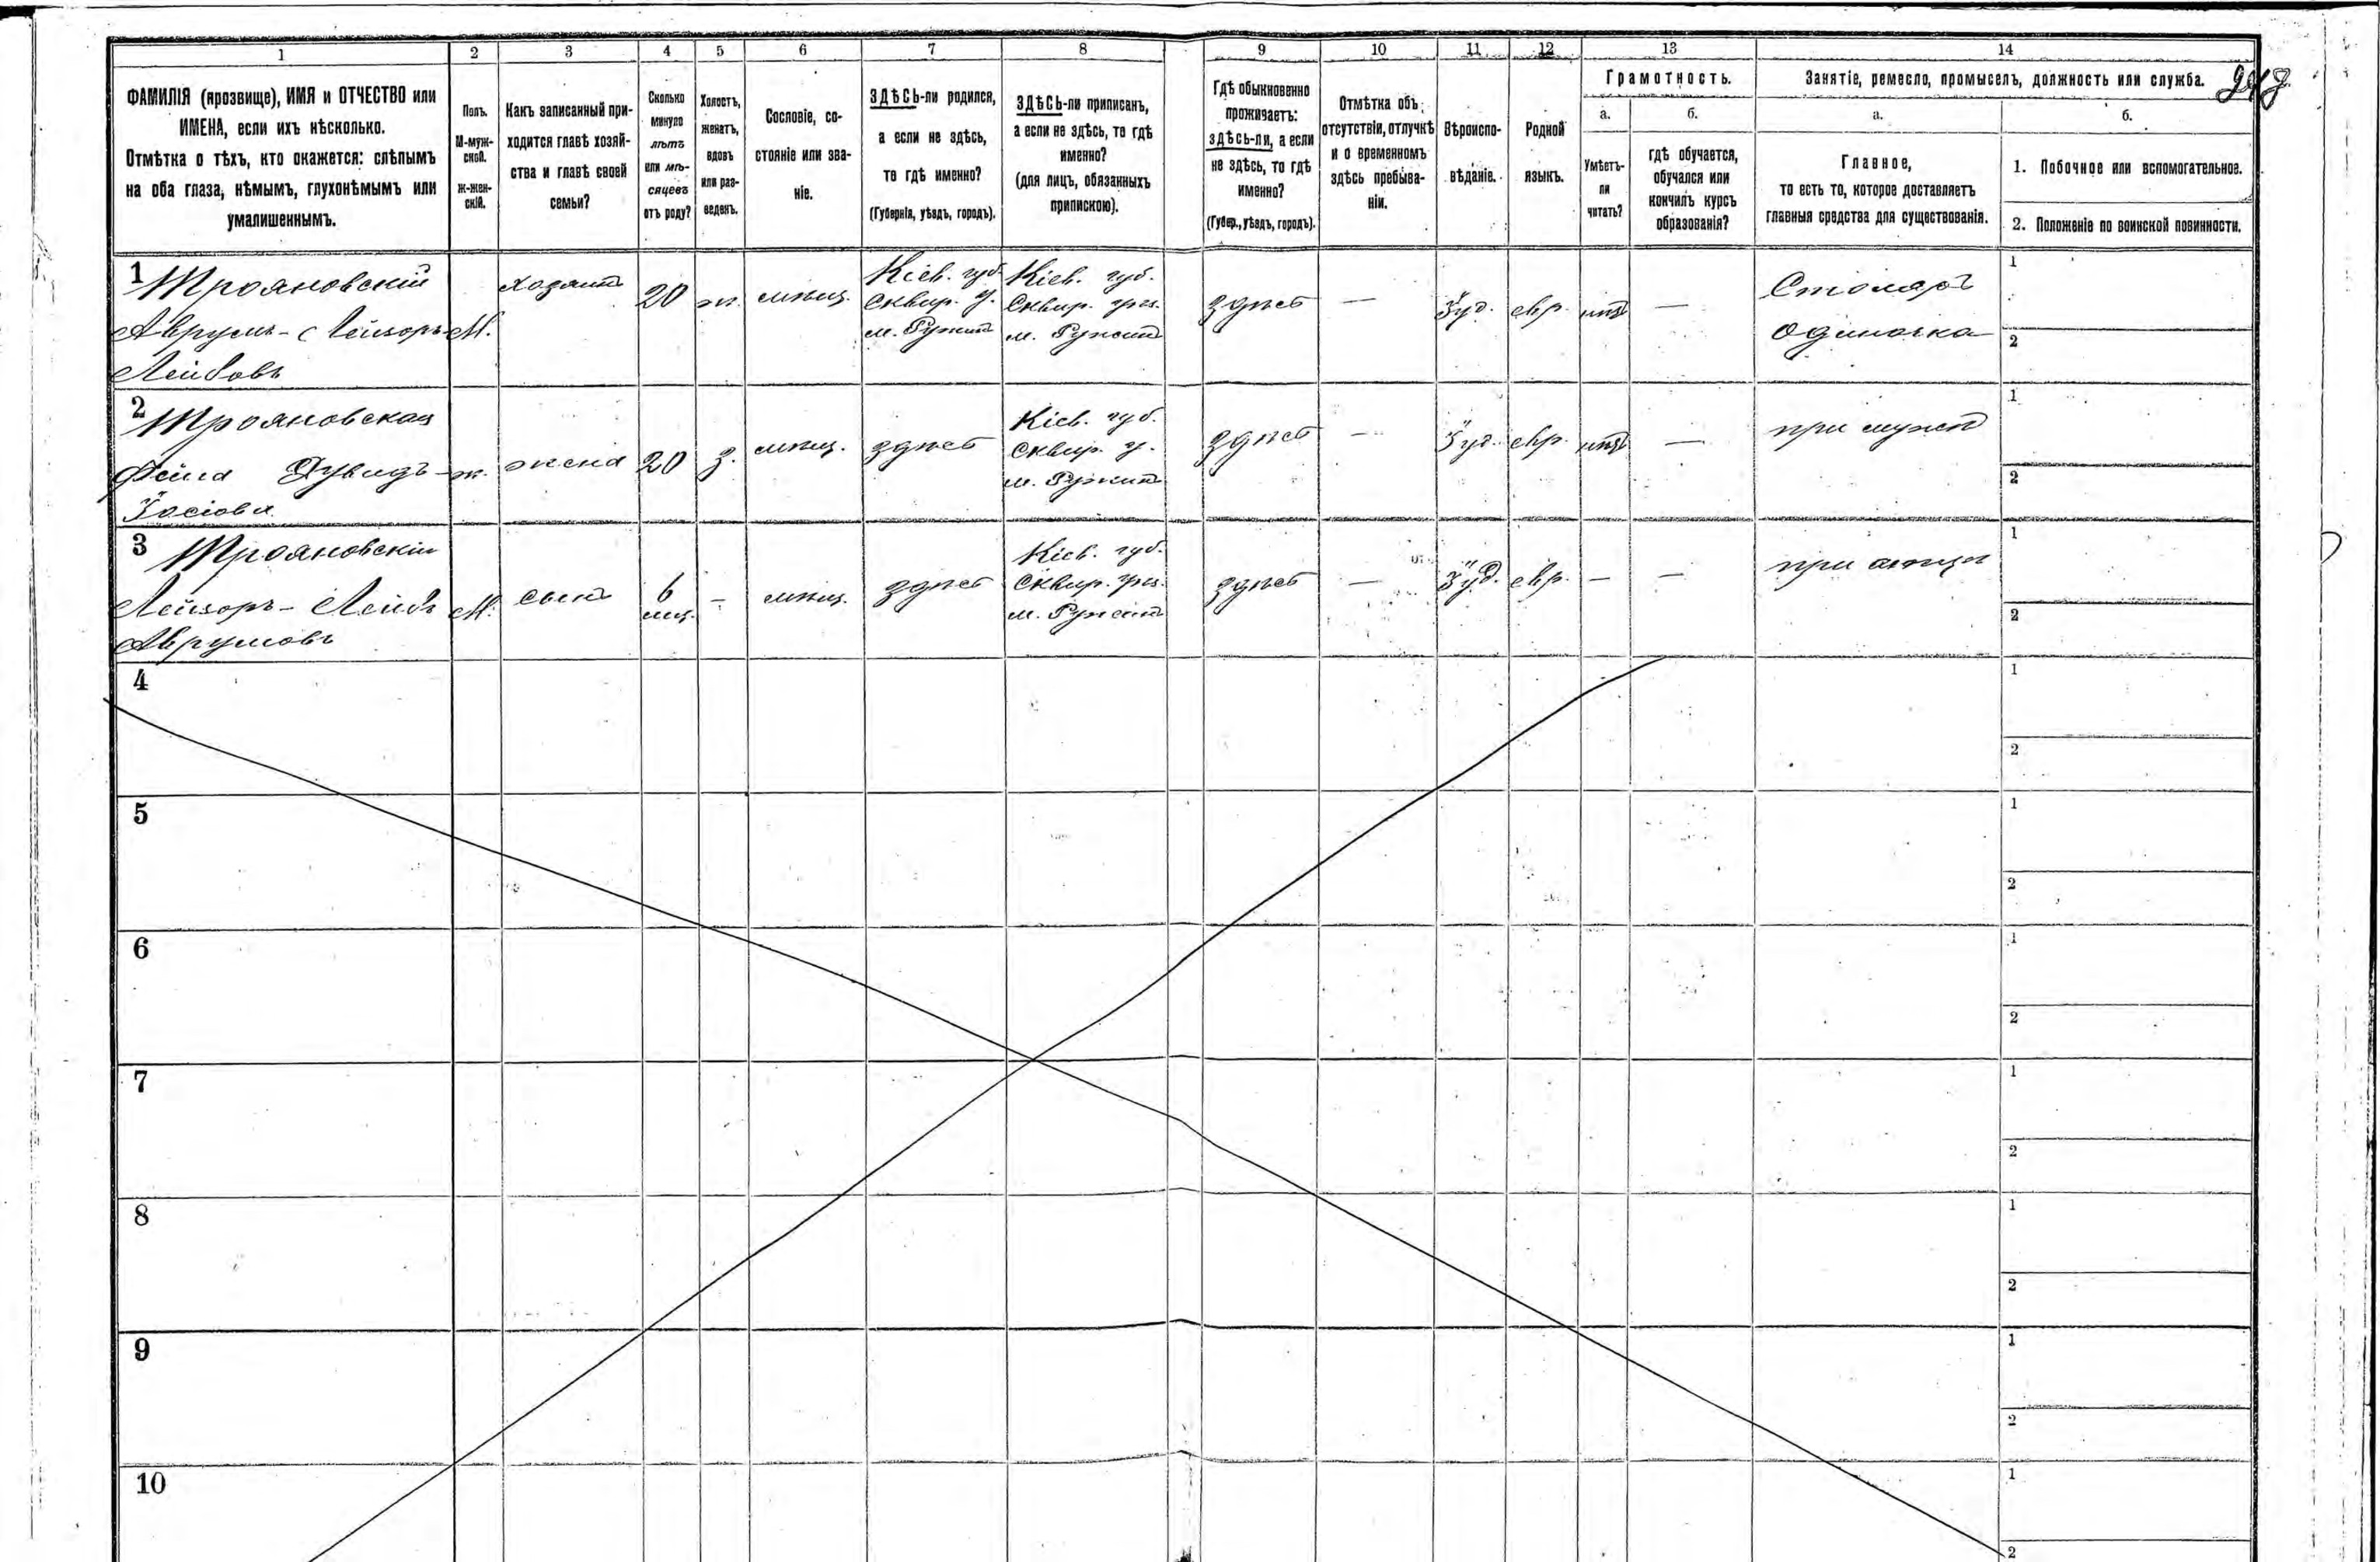 1 2 3 4 5 6 7 8 9 10 11 12 13 14
ФАМИЛІЯ (прозвище), ИМЯ и ОТЧЕСТВО или
ИМЕНА, если ихъ нѣсколько.
Отмѣтка о тѣхъ, кто окажется: слѣпымъ
на оба глаза, нѣмымъ, глухонѣмымъ или
умалишеннымъ.
Полъ.
М-муж-
ской.
Ж-жен-
скій.
Какъ записанный при-
ходится главѣ хозяй-
ства и главѣ своей
семьи?
Сколько
минуло
лѣтъ
или мѣ-
сяцевъ
отъ роду?
Холостъ,
женатъ,
вдовъ
или раз-
веденъ.
Сословіе, со-
стояніе или зва-
ніе.
ЗДѢСЬ-ли родился,
а если не здѣсь,
то гдѣ именно?
(Губернія, уѣздъ, городъ).
ЗДѢСЬ-ли приписанъ,
а если не здѣсь, то гдѣ
именно?
(для лицъ, обязанныхъ
припискою).
Гдѣ обыкновенно
проживаетъ:
ЗДѢСЬ-ли, а если
не здѣсь, то гдѣ
именно?
(Губер., уѣздъ, городъ).
Отмѣтка объ
отсутствіи, отлучкѣ
и о временномъ
здѣсь пребыва-
ніи.
Вѣроиспо-
вѣданіе.
Родной
языкъ.
Грамотность.
а.
Умѣетъ-
ли
читать?
б.
гдѣ обучается,
обучался или
кончилъ курсъ
образованія?
Занятіе, ремесло, промыселъ, должность или служба.
а.
Главное,
то есть то, которое доставляетъ
главныя средства для существованія.
б.
1. Побочное или вспомогательное.
2. Положеніе по воинской повинности.
1 Трояновскій
Аврумъ-Лейзоръ
Лейбовъ
М.
хозяинъ
20
ж.
мѣщ.
Кіев. губ.
Сквир. у.
м. Ружинъ
Кіев. губ.
Сквир. уѣз.
м. Ружинъ
здѣсь
—
Іуд.
евр.
нѣтъ
—
Столяръ
одиночка
1
2
2 Трояновская
Фейга Дувидъ-
Іосіова
ж.
жена
20
з.
мѣщ.
здѣсь
Кіев. губ.
Сквир. у.
м. Ружинъ
здѣсь
—
Іуд.
евр.
нѣтъ
—
при мужѣ
1
2
3 Трояновскій
Лейзоръ-Лейбъ
Аврумовъ
М.
сынъ
6
мѣц.
—
мѣщ.
здѣсь
Кіев. губ.
Сквир. уѣз.
м. Ружинъ
здѣсь
—
Іуд.
евр.
—
—
при отцѣ
1
2
4
1
2
5
1
2
6
1
2
7
1
2
8
1
2
9
1
2
10
1
2